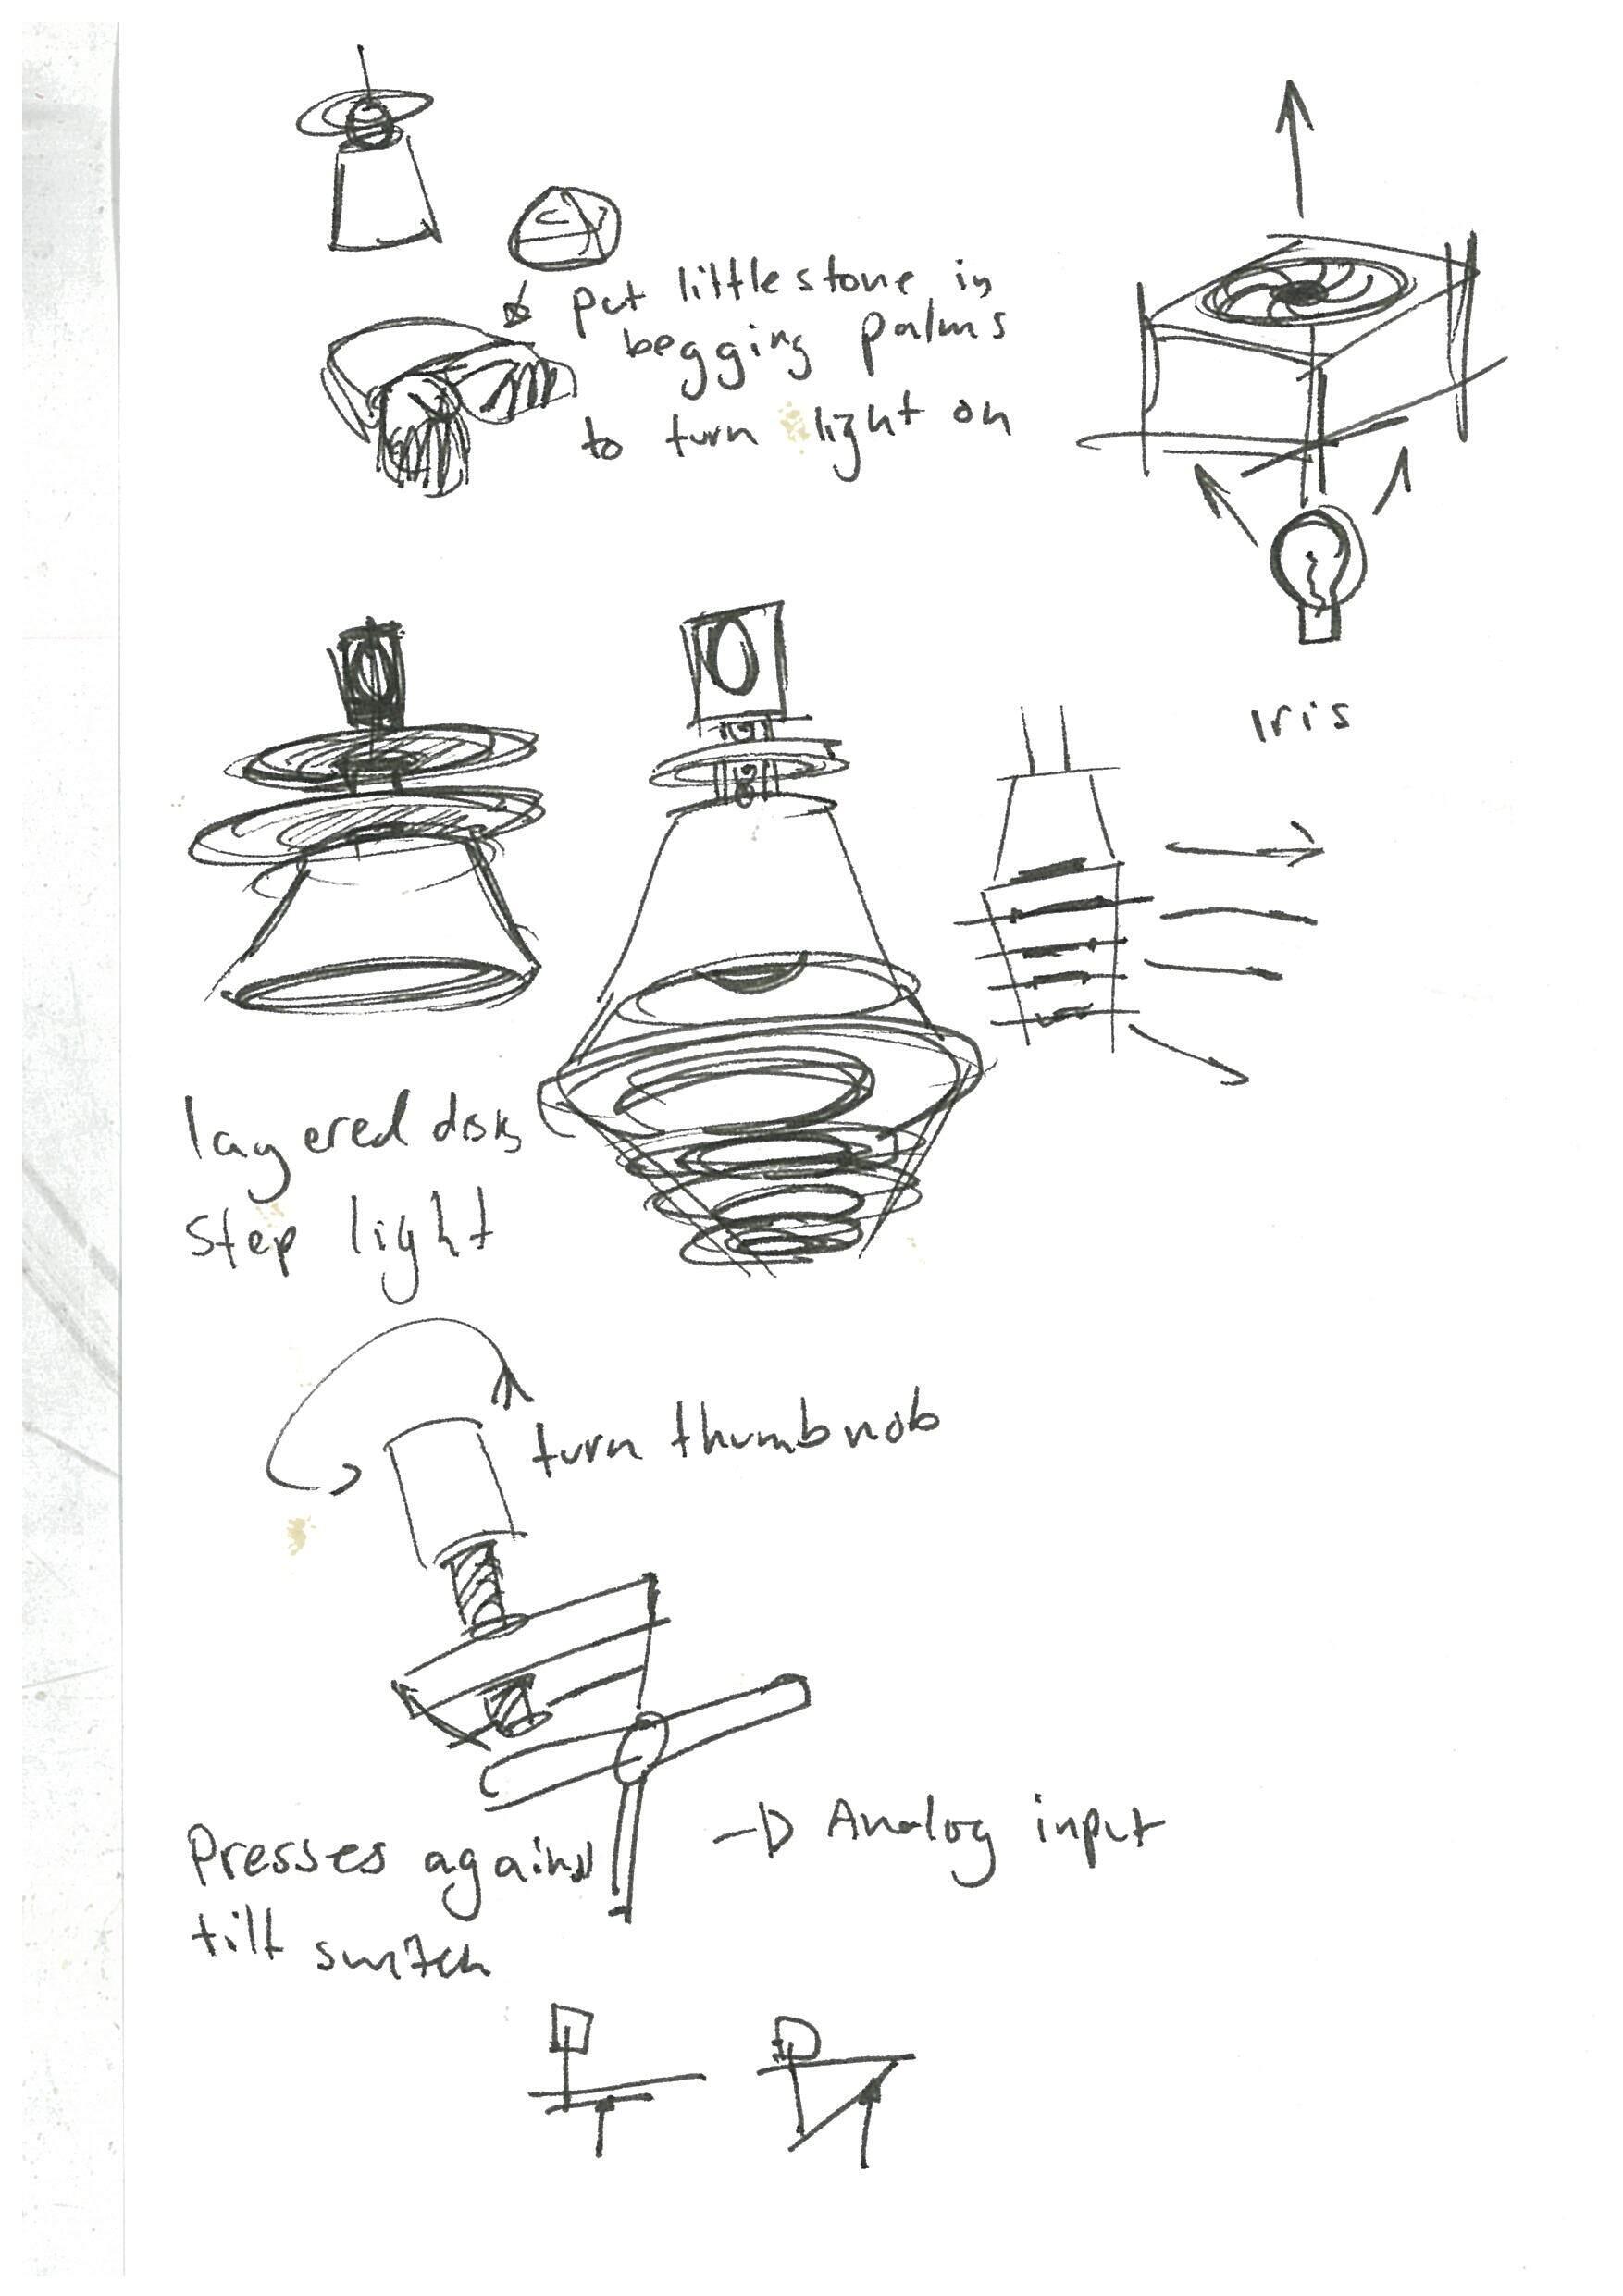 put little stone in
begging palms
to turn light on
Iris
layered disk
Step light
turn thumbnob
Presses against
tilt switch
-D Analog input